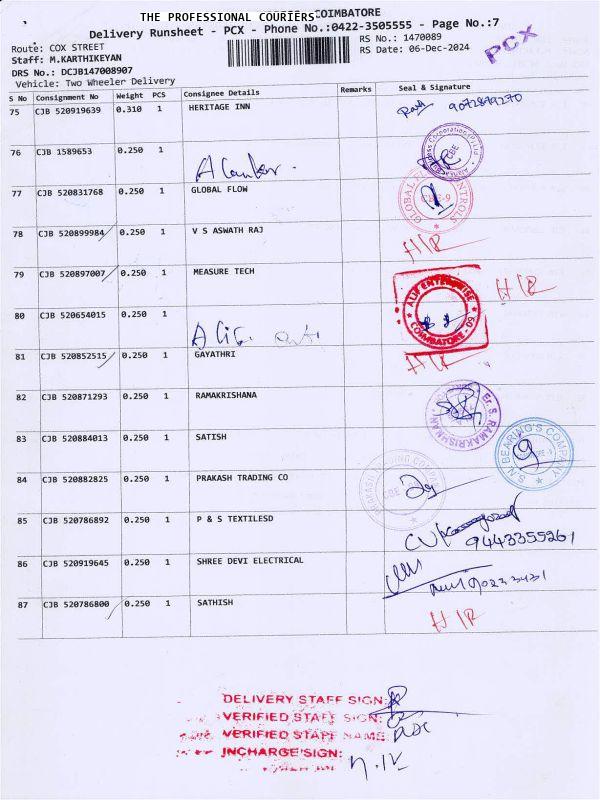 THE PROFESSIONAL COURIERS COIMBATORE
Delivery Runsheet - PCX - Phone No.:0422-3505555 - Page No.:7
Route: COX STREET
Staff: M.KARTHIKEYAN
DRS No.: DCJB147008907
Vehicle: Two Wheeler Delivery
RS No.: 1470089
RS Date: 06-Dec-2024
PCX
S No Consignment No Weight PCS Consignee Details Remarks Seal & Signature
75 CJB 520919639 0.310 1 HERITAGE INN 9072899270
76 CJB 1589653 0.250 1
77 CJB 520831768 0.250 1 GLOBAL FLOW
78 CJB 520899984 0.250 1 V S ASWATH RAJ H/R
79 CJB 520897007 0.250 1 MEASURE TECH H/R
ALIF ENTERPRISE
COIMBATORE - 09
80 CJB 520654015 0.250 1
81 CJB 520852515 0.250 1 GAYATHRI H/R
82 CJB 520871293 0.250 1 RAMAKRISHANA
Er. S. RAMAKRISHNAN
83 CJB 520884013 0.250 1 SATISH
S.N. BEARING'S COMPANY
84 CJB 520882825 0.250 1 PRAKASH TRADING CO
85 CJB 520786892 0.250 1 P & S TEXTILESD
9443355261
86 CJB 520919645 0.250 1 SHREE DEVI ELECTRICAL
87 CJB 520786800 0.250 1 SATHISH H/R
DELIVERY STAFF SIGN:
VERIFIED STAFF SIGN:
VERIFIED STAFF NAME:
INCHARGE SIGN: